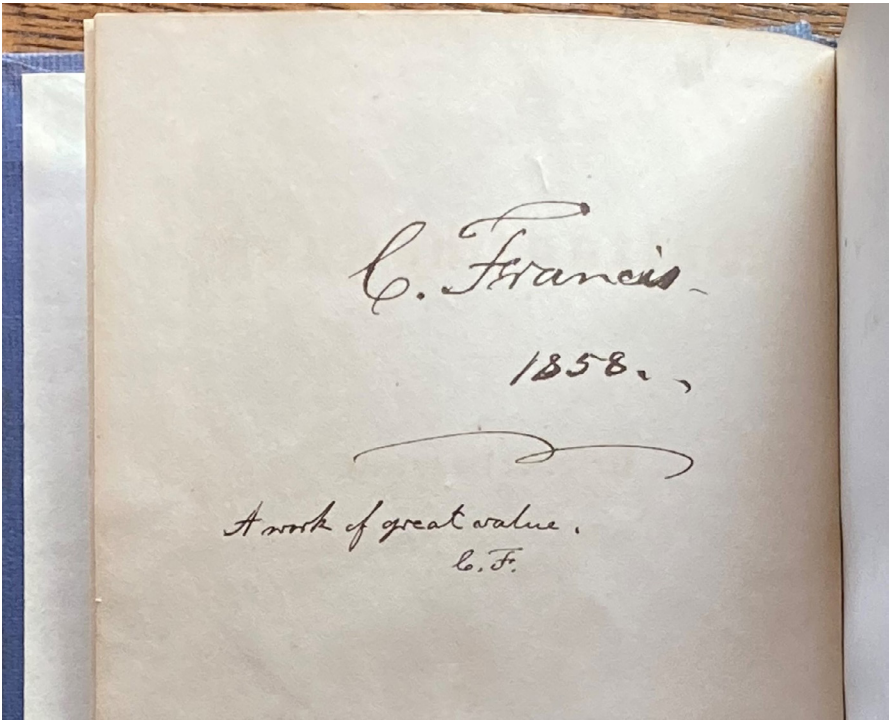 C. Francis
1858.
A work of great value.
C. F.